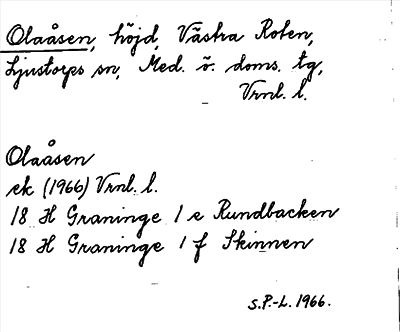 Olaåsen, höjd, Västra Roten,
Ljustorps sn, Med. ö. doms. tg,
Vrnl. l.
Olaåsen
ek (1966) Vrnl. l.
18 H Graninge 1 e Rundbacken
18 H Graninge 1 f Skinnen
S.P.-L. 1966.